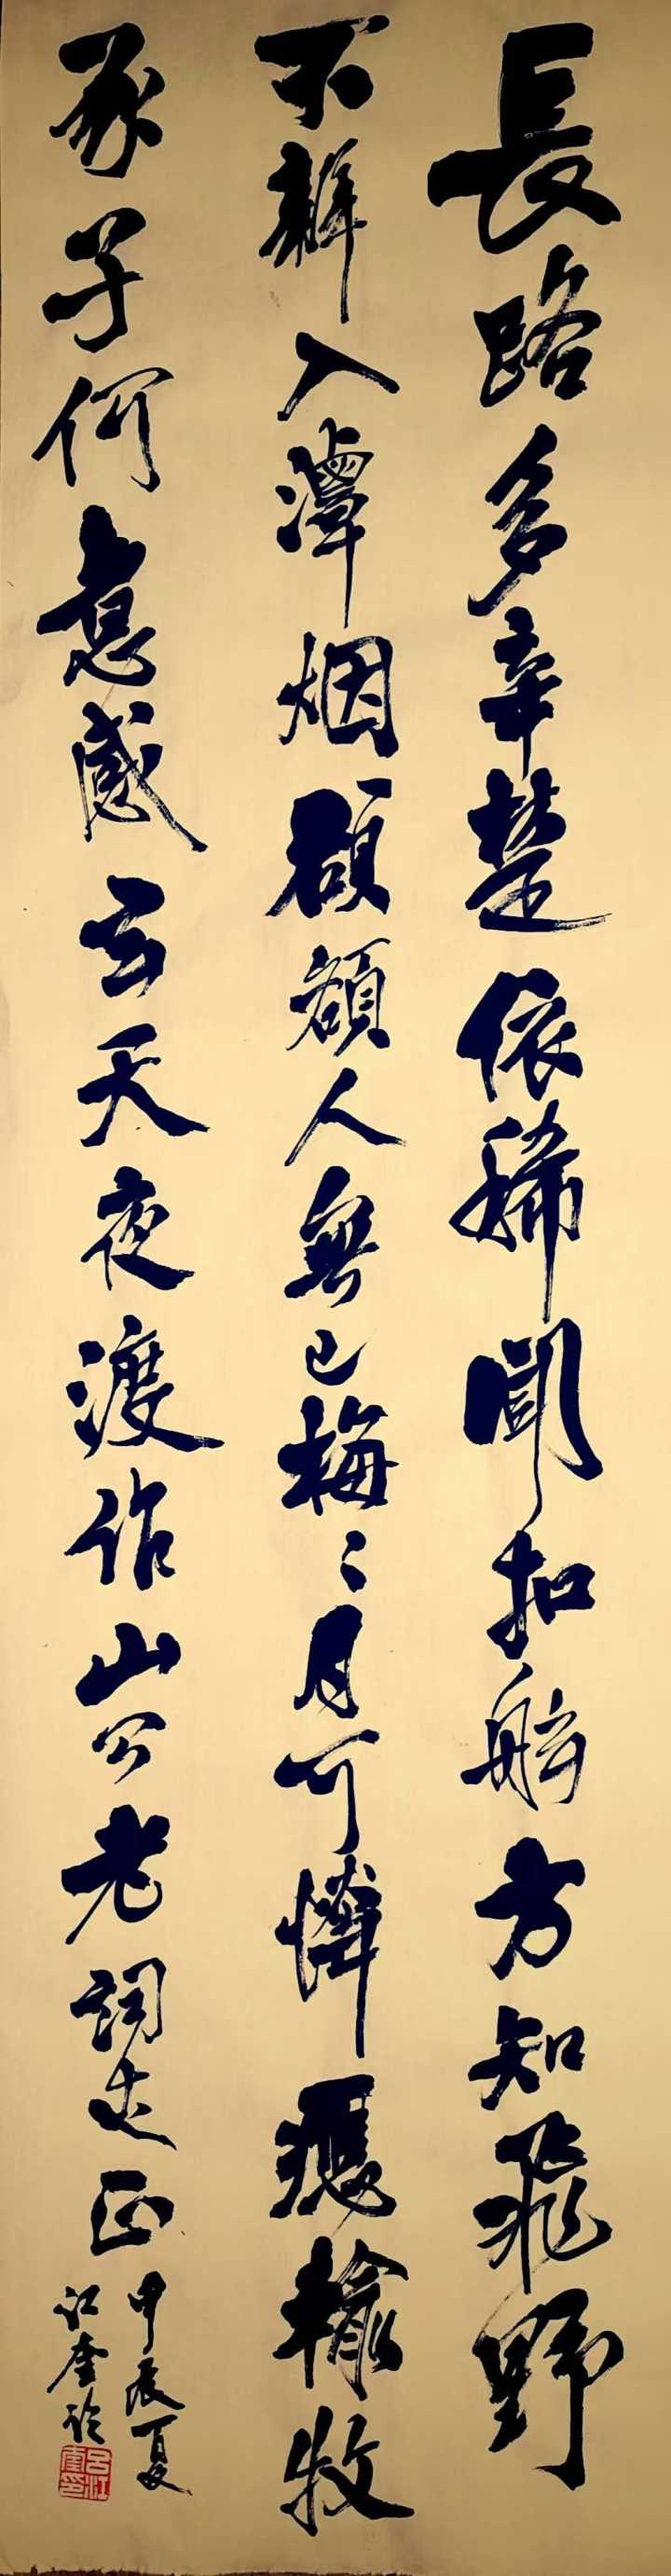 長路多辛楚依稀聞扣舷方知飛野
不辭入澤烟顧額人無已梅〻月可憐應輸牧
豕子何意感玄天夜渡作山公老詞丈正
甲辰夏
江奎論